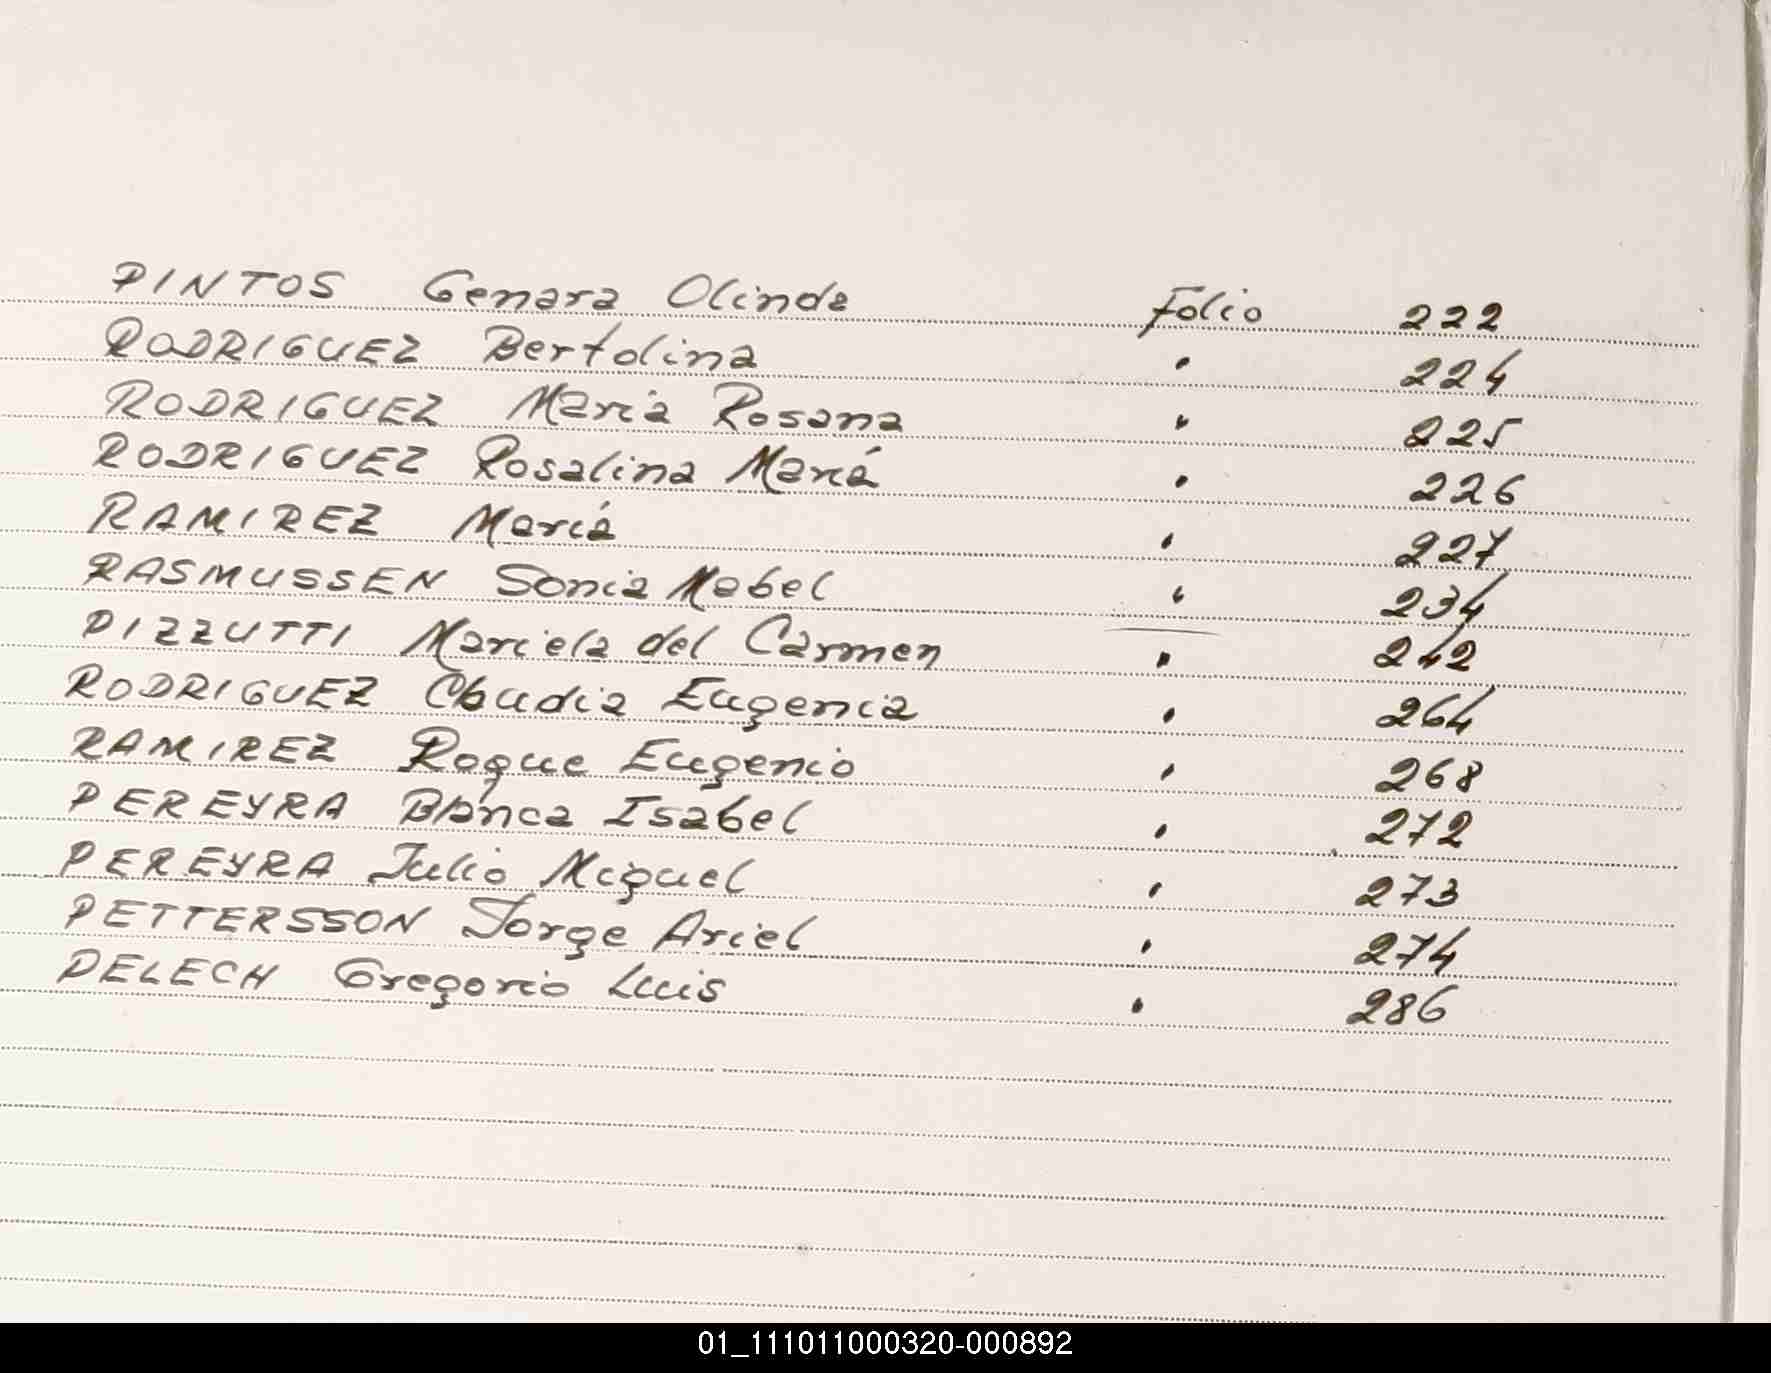 PINTOS Genara Olinda Folio 222
RODRIGUEZ Bertolina " 224
RODRIGUEZ Maria Rosana " 225
RODRIGUEZ Rosalina Mariá " 226
RAMIREZ Mariá " 227
RASMUSSEN Sonia Mabel " 234
PIZZUTTI Mariela del Carmen " 242
RODRIGUEZ Claudia Eugenia " 264
RAMIREZ Roque Eugenio " 268
PEREYRA Blanca Isabel " 272
PEREYRA Julio Miguel " 273
PETTERSSON Jorge Ariel " 274
PELECH Gregorio Luis " 286
01_111011000320-000892